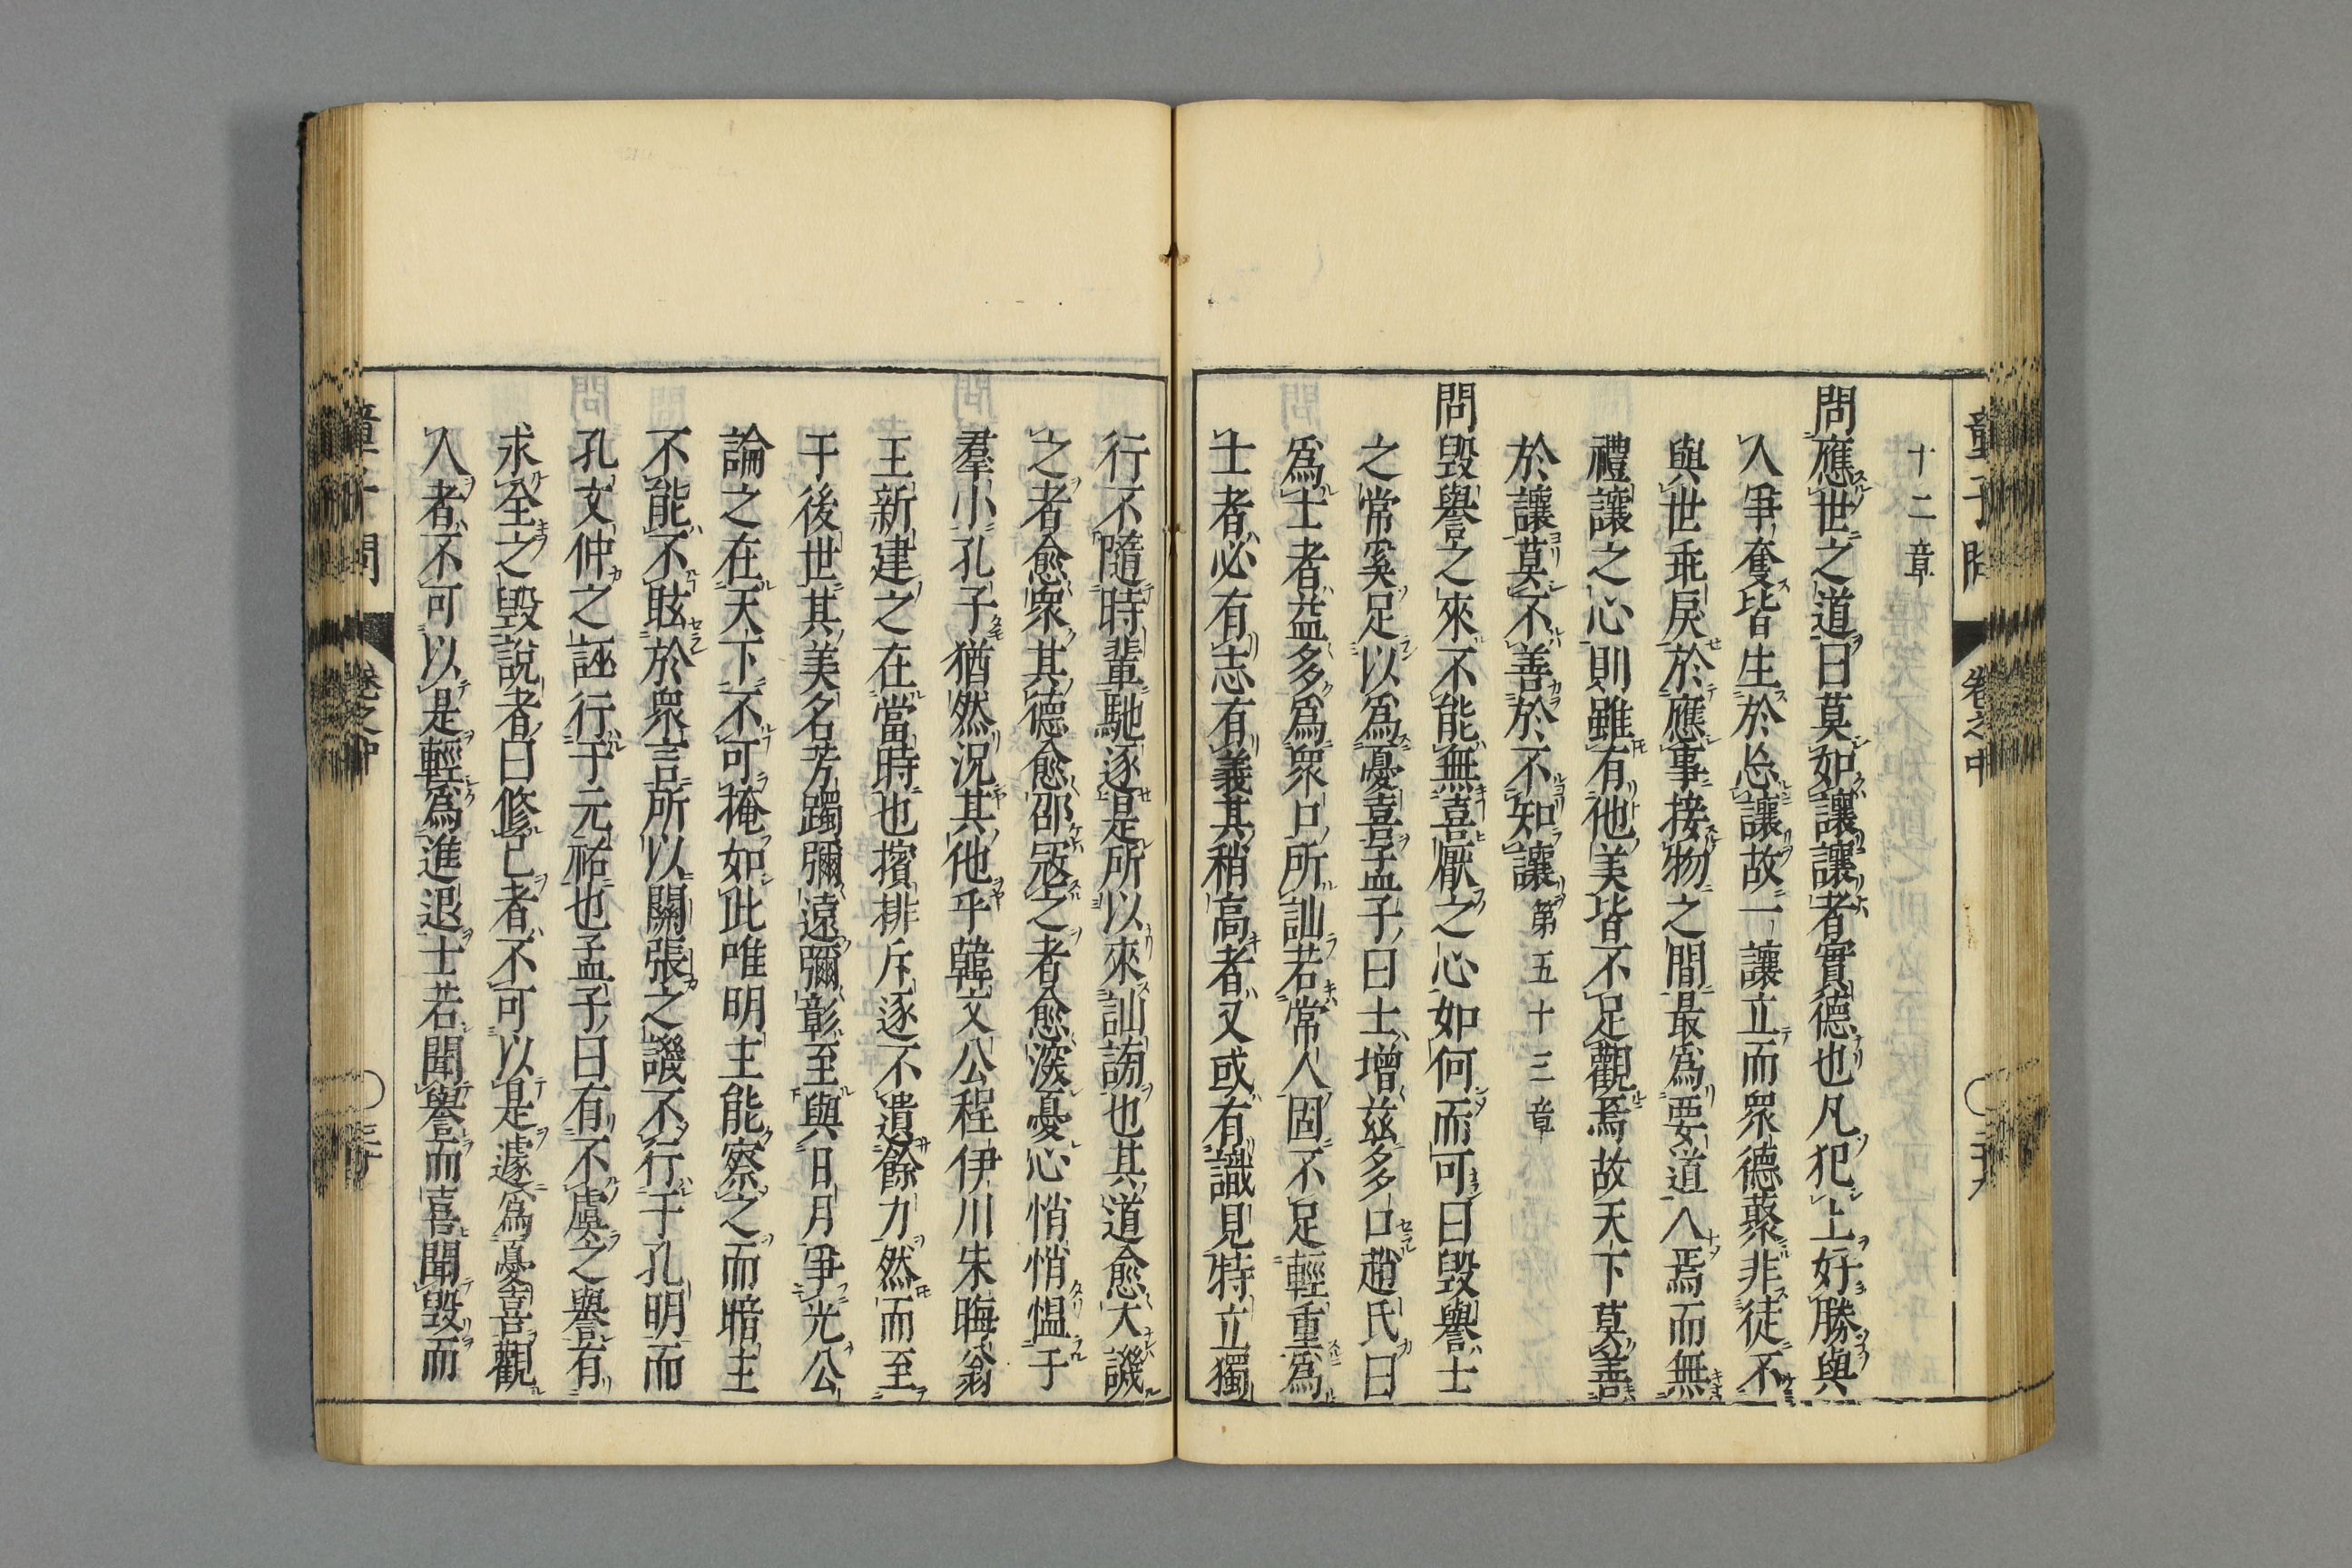 十二章
問應世之道曰莫如讓讓者實德也凡犯上好勝與
人爭奪皆生於忘讓故一讓立而眾德聚非徒不
與世乖戾於應事接物之間最爲要道人焉而無
禮讓之心則雖有他美皆不足觀焉故天下莫善
於讓莫不善於不知讓 第五十三章
問毀譽之來不能無喜厭之心如何而可曰毀譽士
之常奚足以爲憂喜孟子曰士增茲多口趙氏曰
爲士者益多爲眾口所訕若常人固不足輕重爲
士者必有志有義其稍高者又或有識見特立獨
行不隨時輩馳逐是所以來訕謗也其道愈大譏
之者愈眾其德愈邵寇之者愈深憂心悄悄慍于
羣小孔子猶然況其他乎韓文公程伊川朱晦翁
王新建之在當時也擯排斥逐不遺餘力然而至
于後世其美名芳躅彌遠彌彰至與日月爭光公
論之在天下不可掩如此唯明主能察之而暗主
不能不眩於眾言所以關張之譏不行于孔明而
孔文仲之誣行于元祐也孟子曰有不虞之譽有
求全之毀說者曰修己者不可以是遽爲憂喜觀
人者不可以是輕爲進退士若聞譽而喜聞毀而
童子問 卷之中